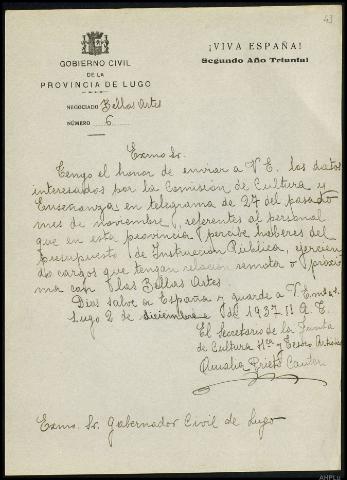 43
GOBIERNO CIVIL
DE LA
PROVINCIA DE LUGO
NEGOCIADO Bellas Artes
NÚMERO 6
¡VIVA ESPAÑA!
Segundo Año Triunfal
Exmo Sr.
Tengo el honor de enviar a V.E. los datos
interesados por la Comisión de Cultura y
Enseñanza, en telegrama de 27 del pasado
mes de noviembre, referentes al personal
que en esta provincia percibe haberes del
presupuesto de Instrucción Pública, ejercien
do cargos que tengan relación remota o próxi
ma con las Bellas Artes.
Dios salve a España y guarde a V.E. m. a.
Lugo 2 de diciembre de 1937 II A. T.
El Secretario de la Junta
de Cultura Hca y Tesoro Artístico
Prieto
Exmo. Sr. Gobernador Civil de Lugo
AHPLu